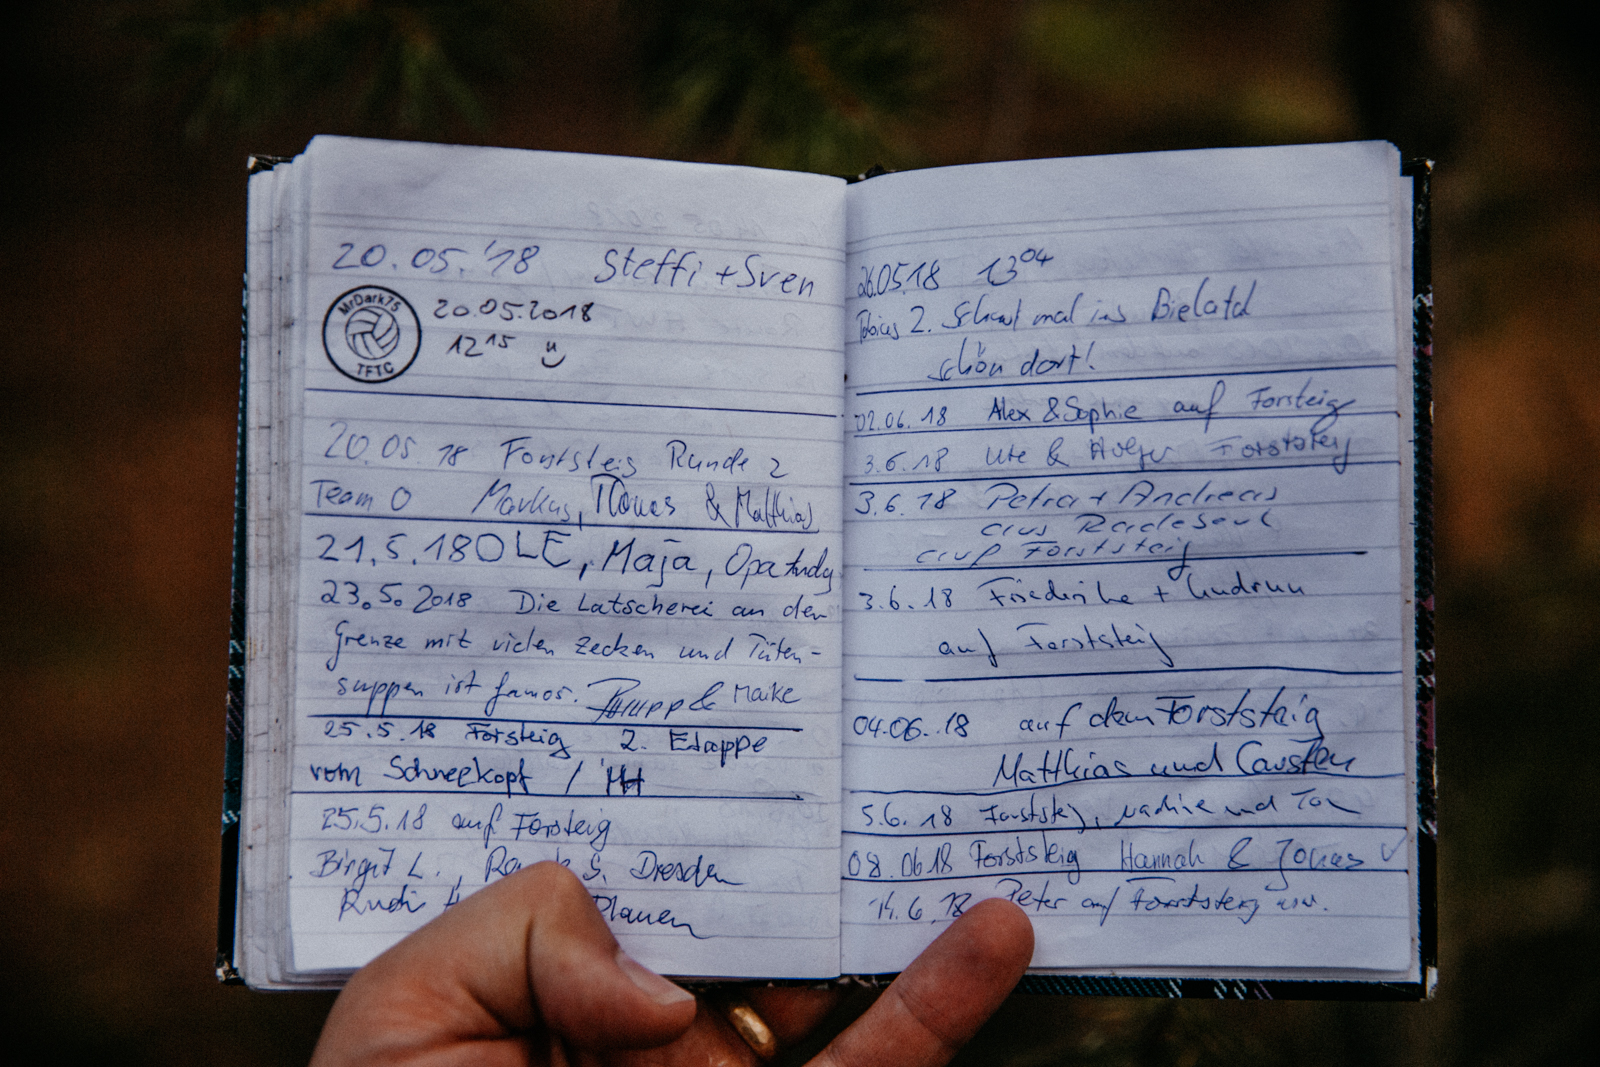 20.05.'18 Steffi + Sven
MrDark75
TFTC
20.05.2018
12 15
20.05.18 Forststeig Runde 2
Team O Markus, & Matthias
21.5.18 OLE, Maja, Opa Andy
23.5.2018 Die Latscherei an der
Grenze mit vielen Zecken und Tüten-
suppen ist famos. Philipp & Maike
25.5.18 Forsteig 2. Etappe
vom Schneekopf /
25.5.18 auf Forsteig
Birgit L., S. Dresden
Rudi Plauen
26.05.18 13 04
Tobias Z. Schaut mal ins Bielatal
schön dort!
02.06.18 Alex & Sophie auf Forsteig
3.6.18 Ute & Holger Forststeig
3.6.18 Petra + Andreas
aus Radebeul
auf Forststeig
3.6.18 Friederike + Gudrun
auf Forststeig
04.06.18 auf dem Forststeig
Matthias und Carsten
5.6.18 Forststeig, Nadine und
08.06.18 Forststeig Hannah & Jonas
14.6.18 Peter auf Forststeig